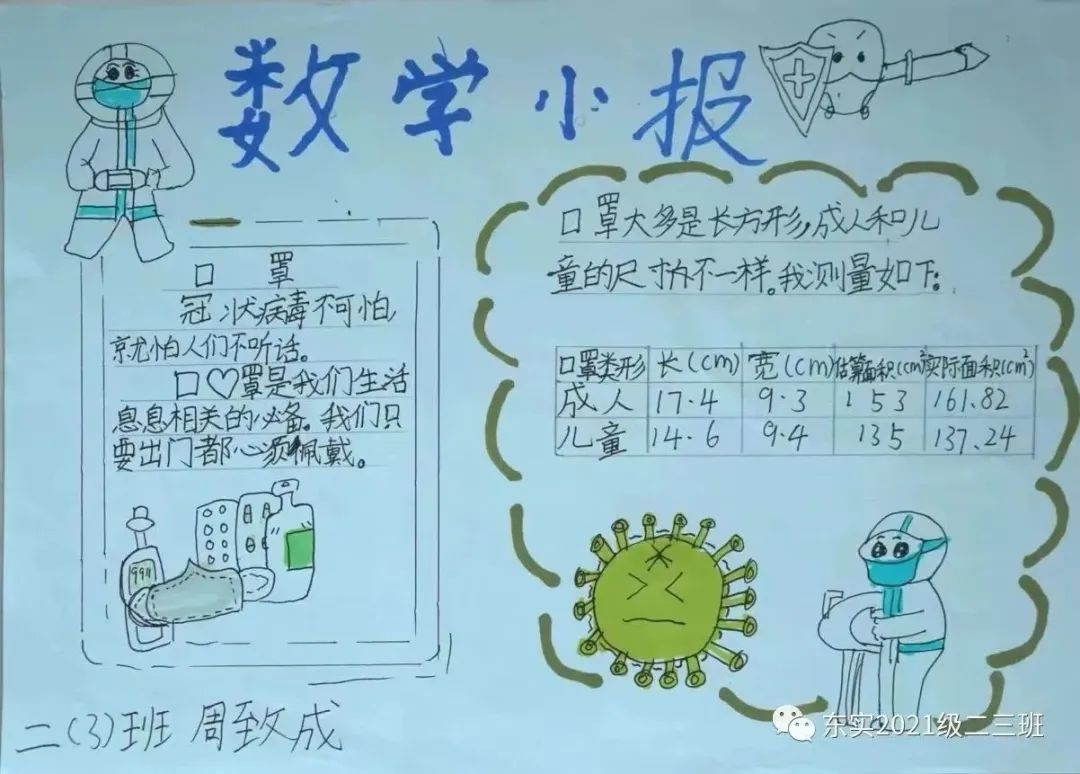 数学小报
口 罩
冠状病毒不可怕,
就怕人们不听话。
口罩是我们生活
息息相关的必备。我们只
要出门都必须佩戴。
9911
口罩大多是长方形,成人和儿
童的尺寸不一样。我测量如下:
口罩类形 长(cm) 宽(cm) 估算面积(cm²) 实际面积(cm²)
成人 17.4 9.3 153 161.82
儿童 14.6 9.4 135 137.24
二(3)班 周致成
东实2021级二三班